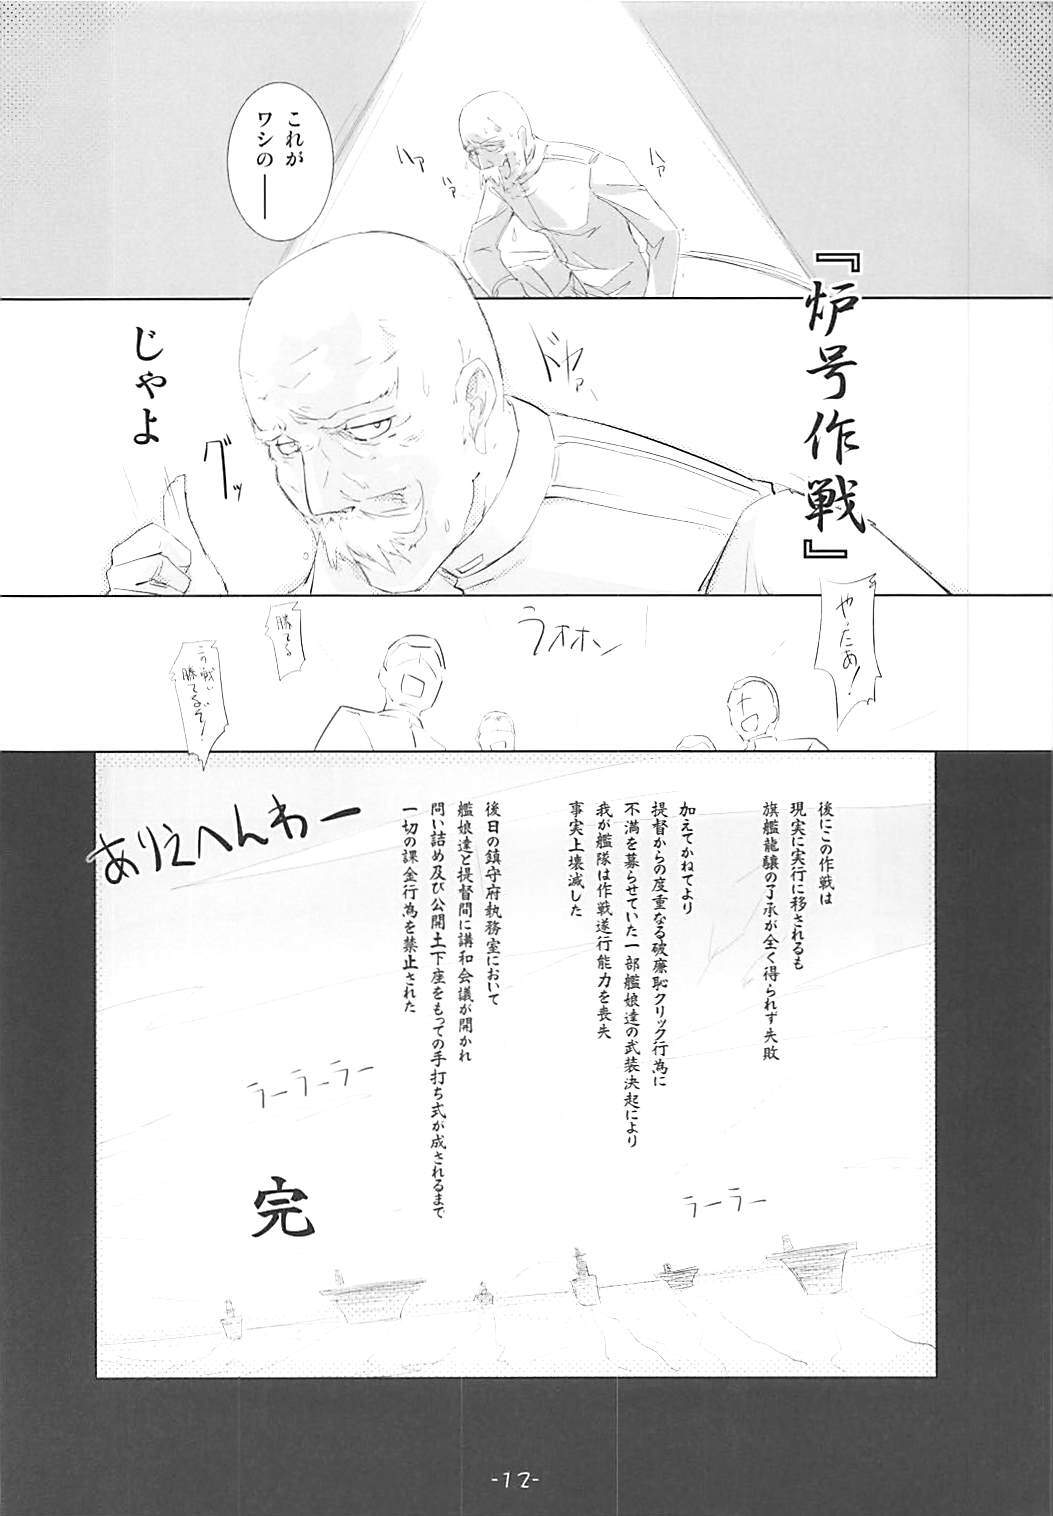 これが
ワシの――
ハァ
ハァ
ハァ
『炉号作戦』
ドヤァ
じゃよ
グッ
やったあ!
ウオオホン
勝てる
この戦い
勝てるぞ!
後にこの作戦は
現実に実行に移されるも
旗艦龍驤の了承が全く得られず失敗
加えてかねてより
提督からの度重なる破廉恥クリック行為に
不満を募らせていた一部艦娘達の武装決起により
我が艦隊は作戦遂行能力を喪失
事実上壊滅した
後日の鎮守府執務室において
艦娘達と提督間に講和会議が開かれ
問い詰め及び公開土下座をもっての手打ち式が成されるまで
一切の課金行為を禁止された
ありえへんわー
ラーラーラー
ラーラー
完
-12-